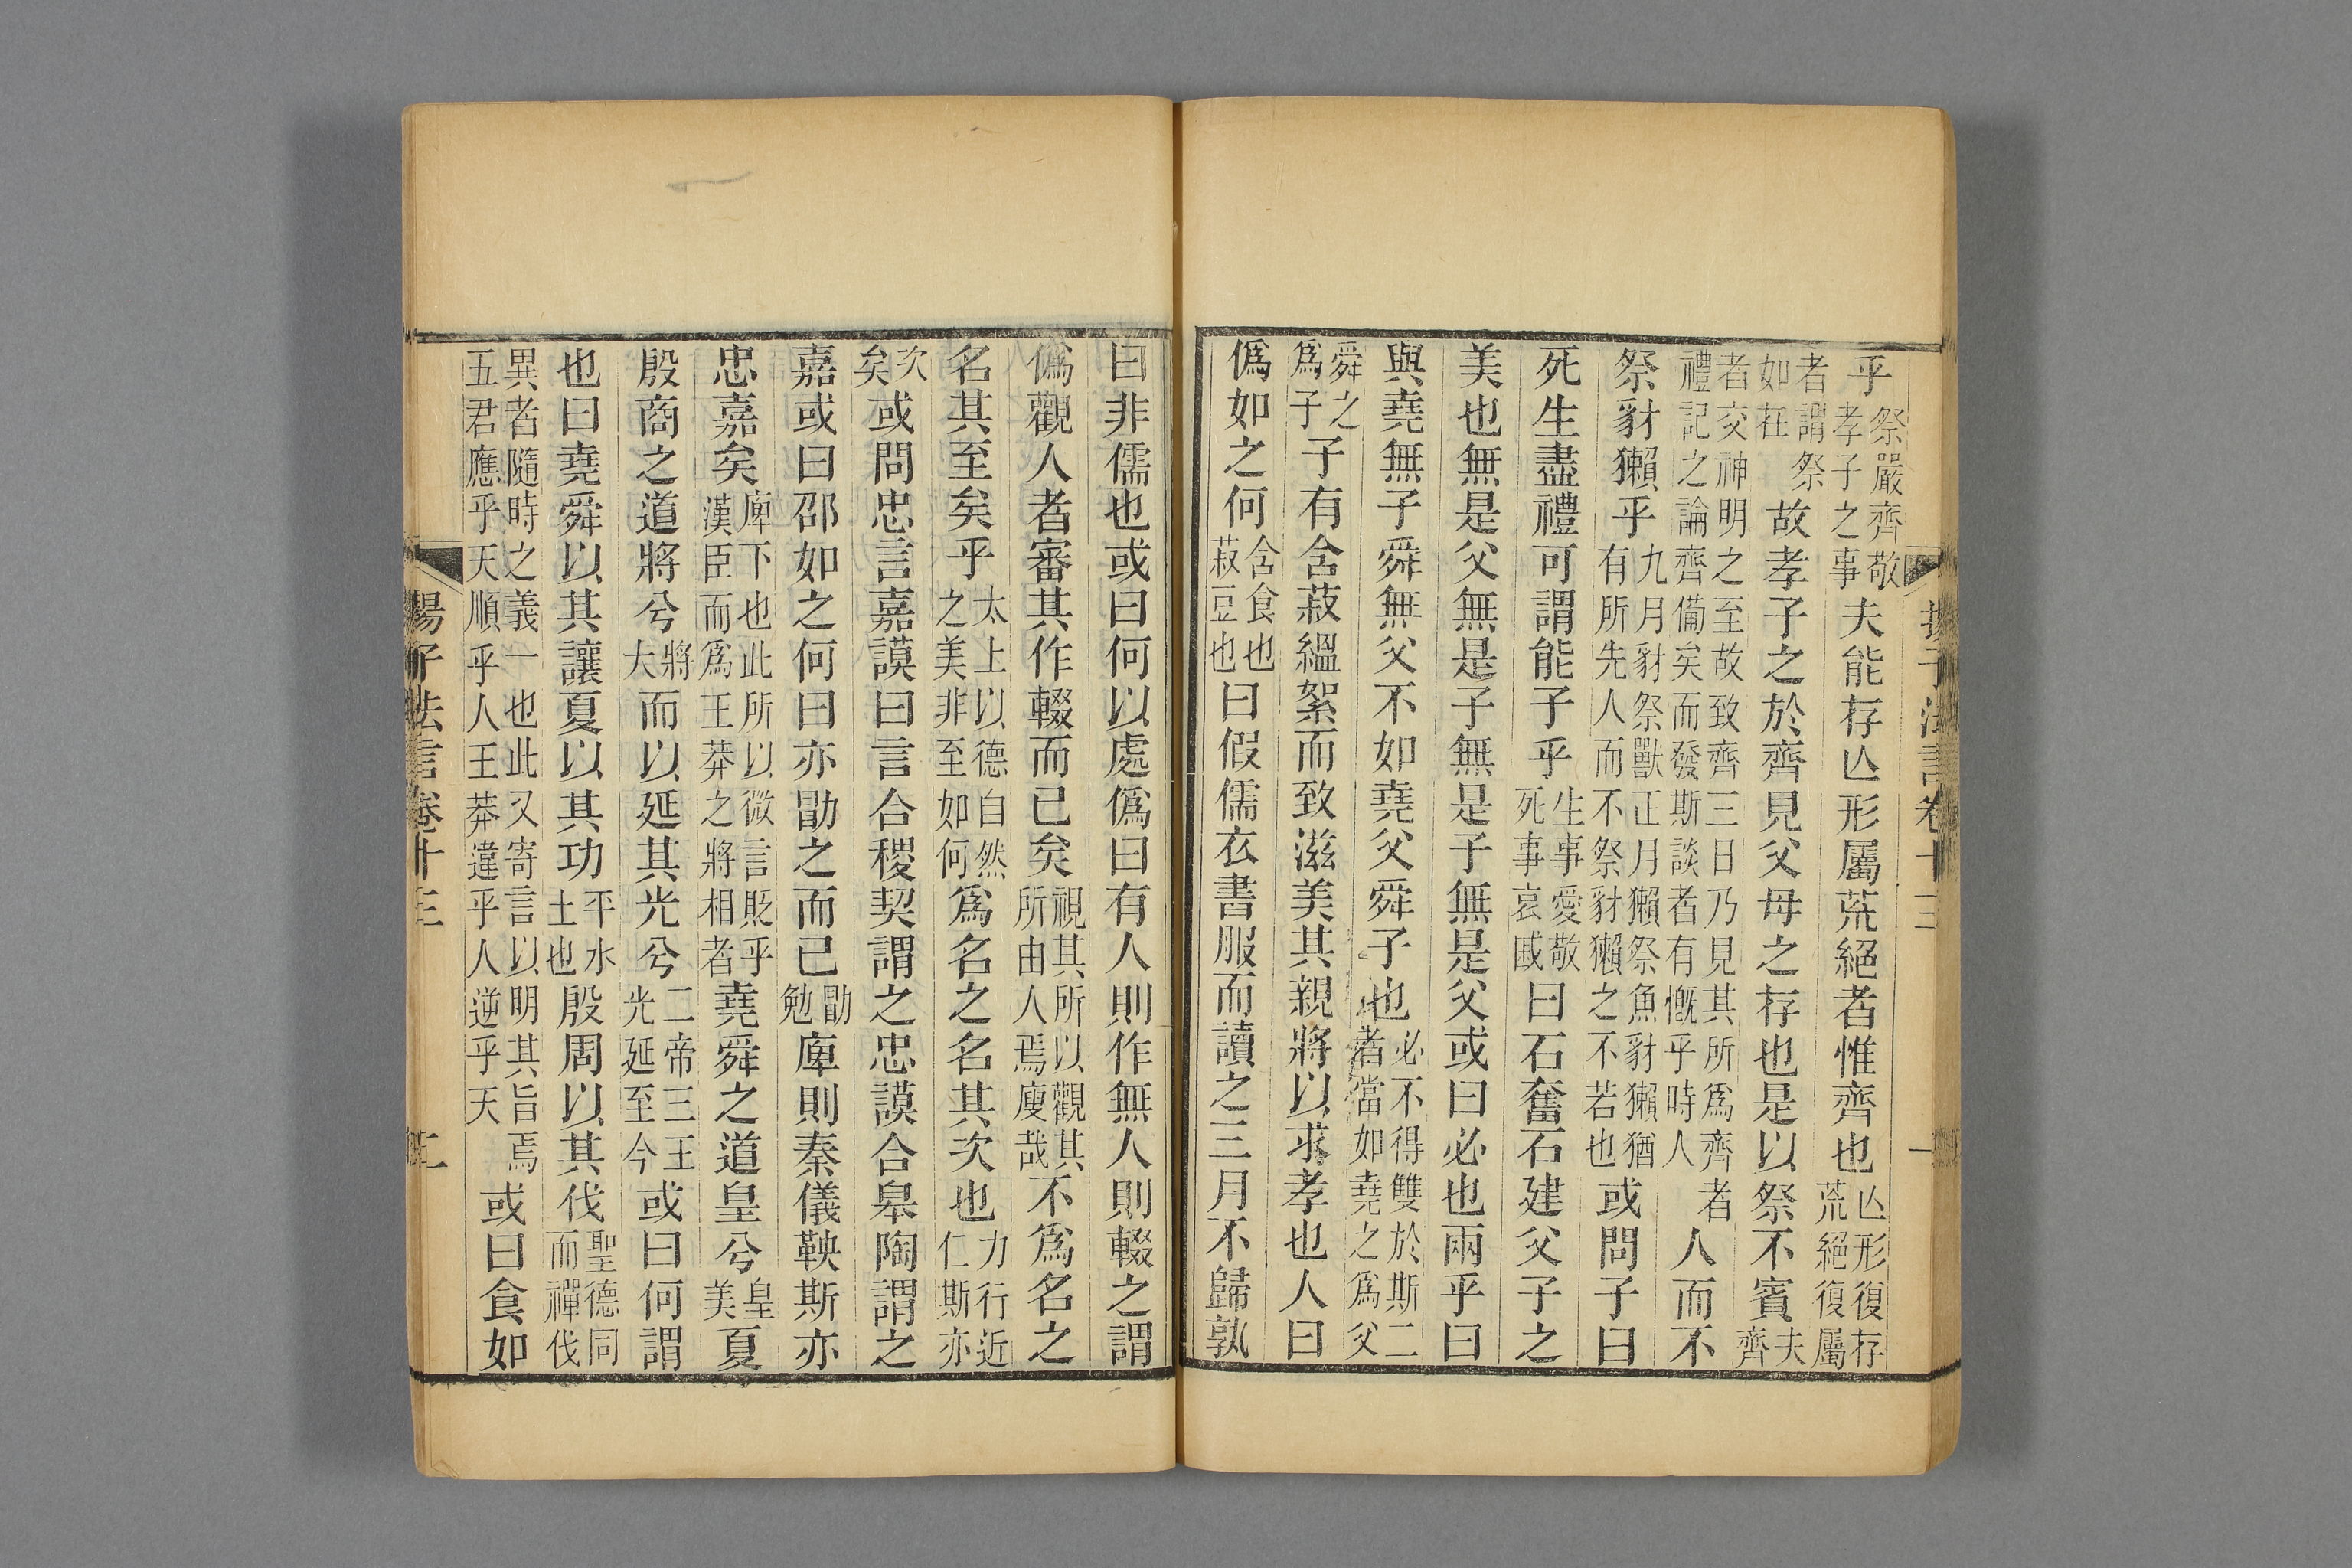 揚子法言卷十三 一
乎祭嚴齊敬孝子之事夫能存亾形屬荒絕者惟齊也亾形復存荒絕復屬
者謂祭如在故孝子之於齊見父母之存也是以祭不賓夫齊
者交神明之至故致齊三日乃見其所爲齊者禮記之論齊備矣而發斯談者有慨乎時人人而不
祭豺獺乎九月豺祭獸正月獺祭魚豺獺猶有所先人而不祭豺獺之不若也或問子曰
死生盡禮可謂能子乎生事愛敬死事哀慼曰石奮石建父子之
美也無是父無是子無是子無是父或曰必也兩乎曰
與堯無子舜無父不如堯父舜子也必不得雙於斯二者當如堯之爲父
舜之爲子子有含菽縕絮而致滋美其親將以求孝也人曰
僞如之何含食也菽豆也曰假儒衣書服而讀之三月不歸孰
曰非儒也或曰何以處僞曰有人則作無人則輟之謂
僞觀人者審其作輟而已矣視其所以觀其所由人焉廋哉不爲名之
名其至矣乎太上以德自然之美非至如何爲名之名其次也力行近仁斯亦
次矣或問忠言嘉謨曰言合稷契謂之忠謨合皋陶謂之
嘉或曰邵如之何曰亦勖之而已勖勉庳則秦儀鞅斯亦
忠嘉矣庳下也此所以微言貶乎漢臣而爲王莽之將相者堯舜之道皇兮皇美夏
殷商之道將兮將大而以延其光兮二帝三王光延至今或曰何謂
也曰堯舜以其讓夏以其功平水土也殷周以其伐聖德同而禪伐
異者隨時之義一也此又寄言以明其旨焉五君應乎天順乎人王莽違乎人逆乎天或曰食如
揚子法言卷十三 二